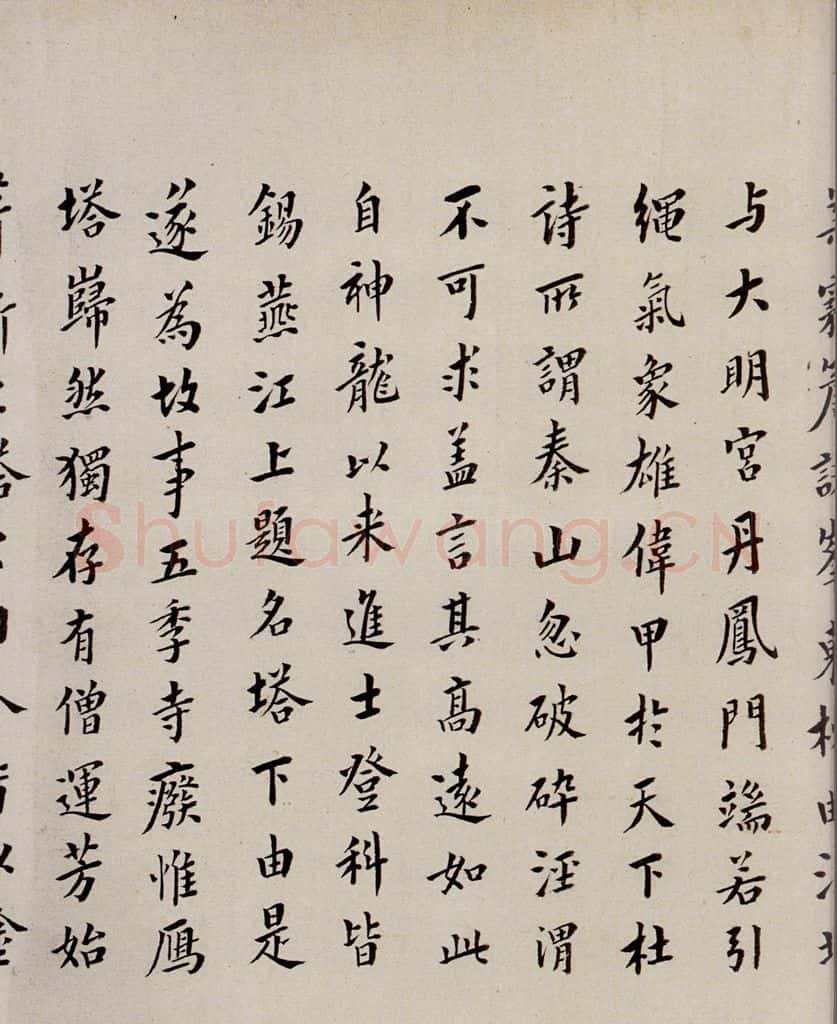 与大明宮丹鳳門端若引
繩氣象雄偉甲於天下杜
詩所謂秦山忽破碎涇渭
不可求盖言其高遠如此
自神龍以来進士登科皆
錫燕江上題名塔下由是
遂為故事五季寺廢惟鴈
塔巋然獨存有僧蓮芳始
Shufawang.CN